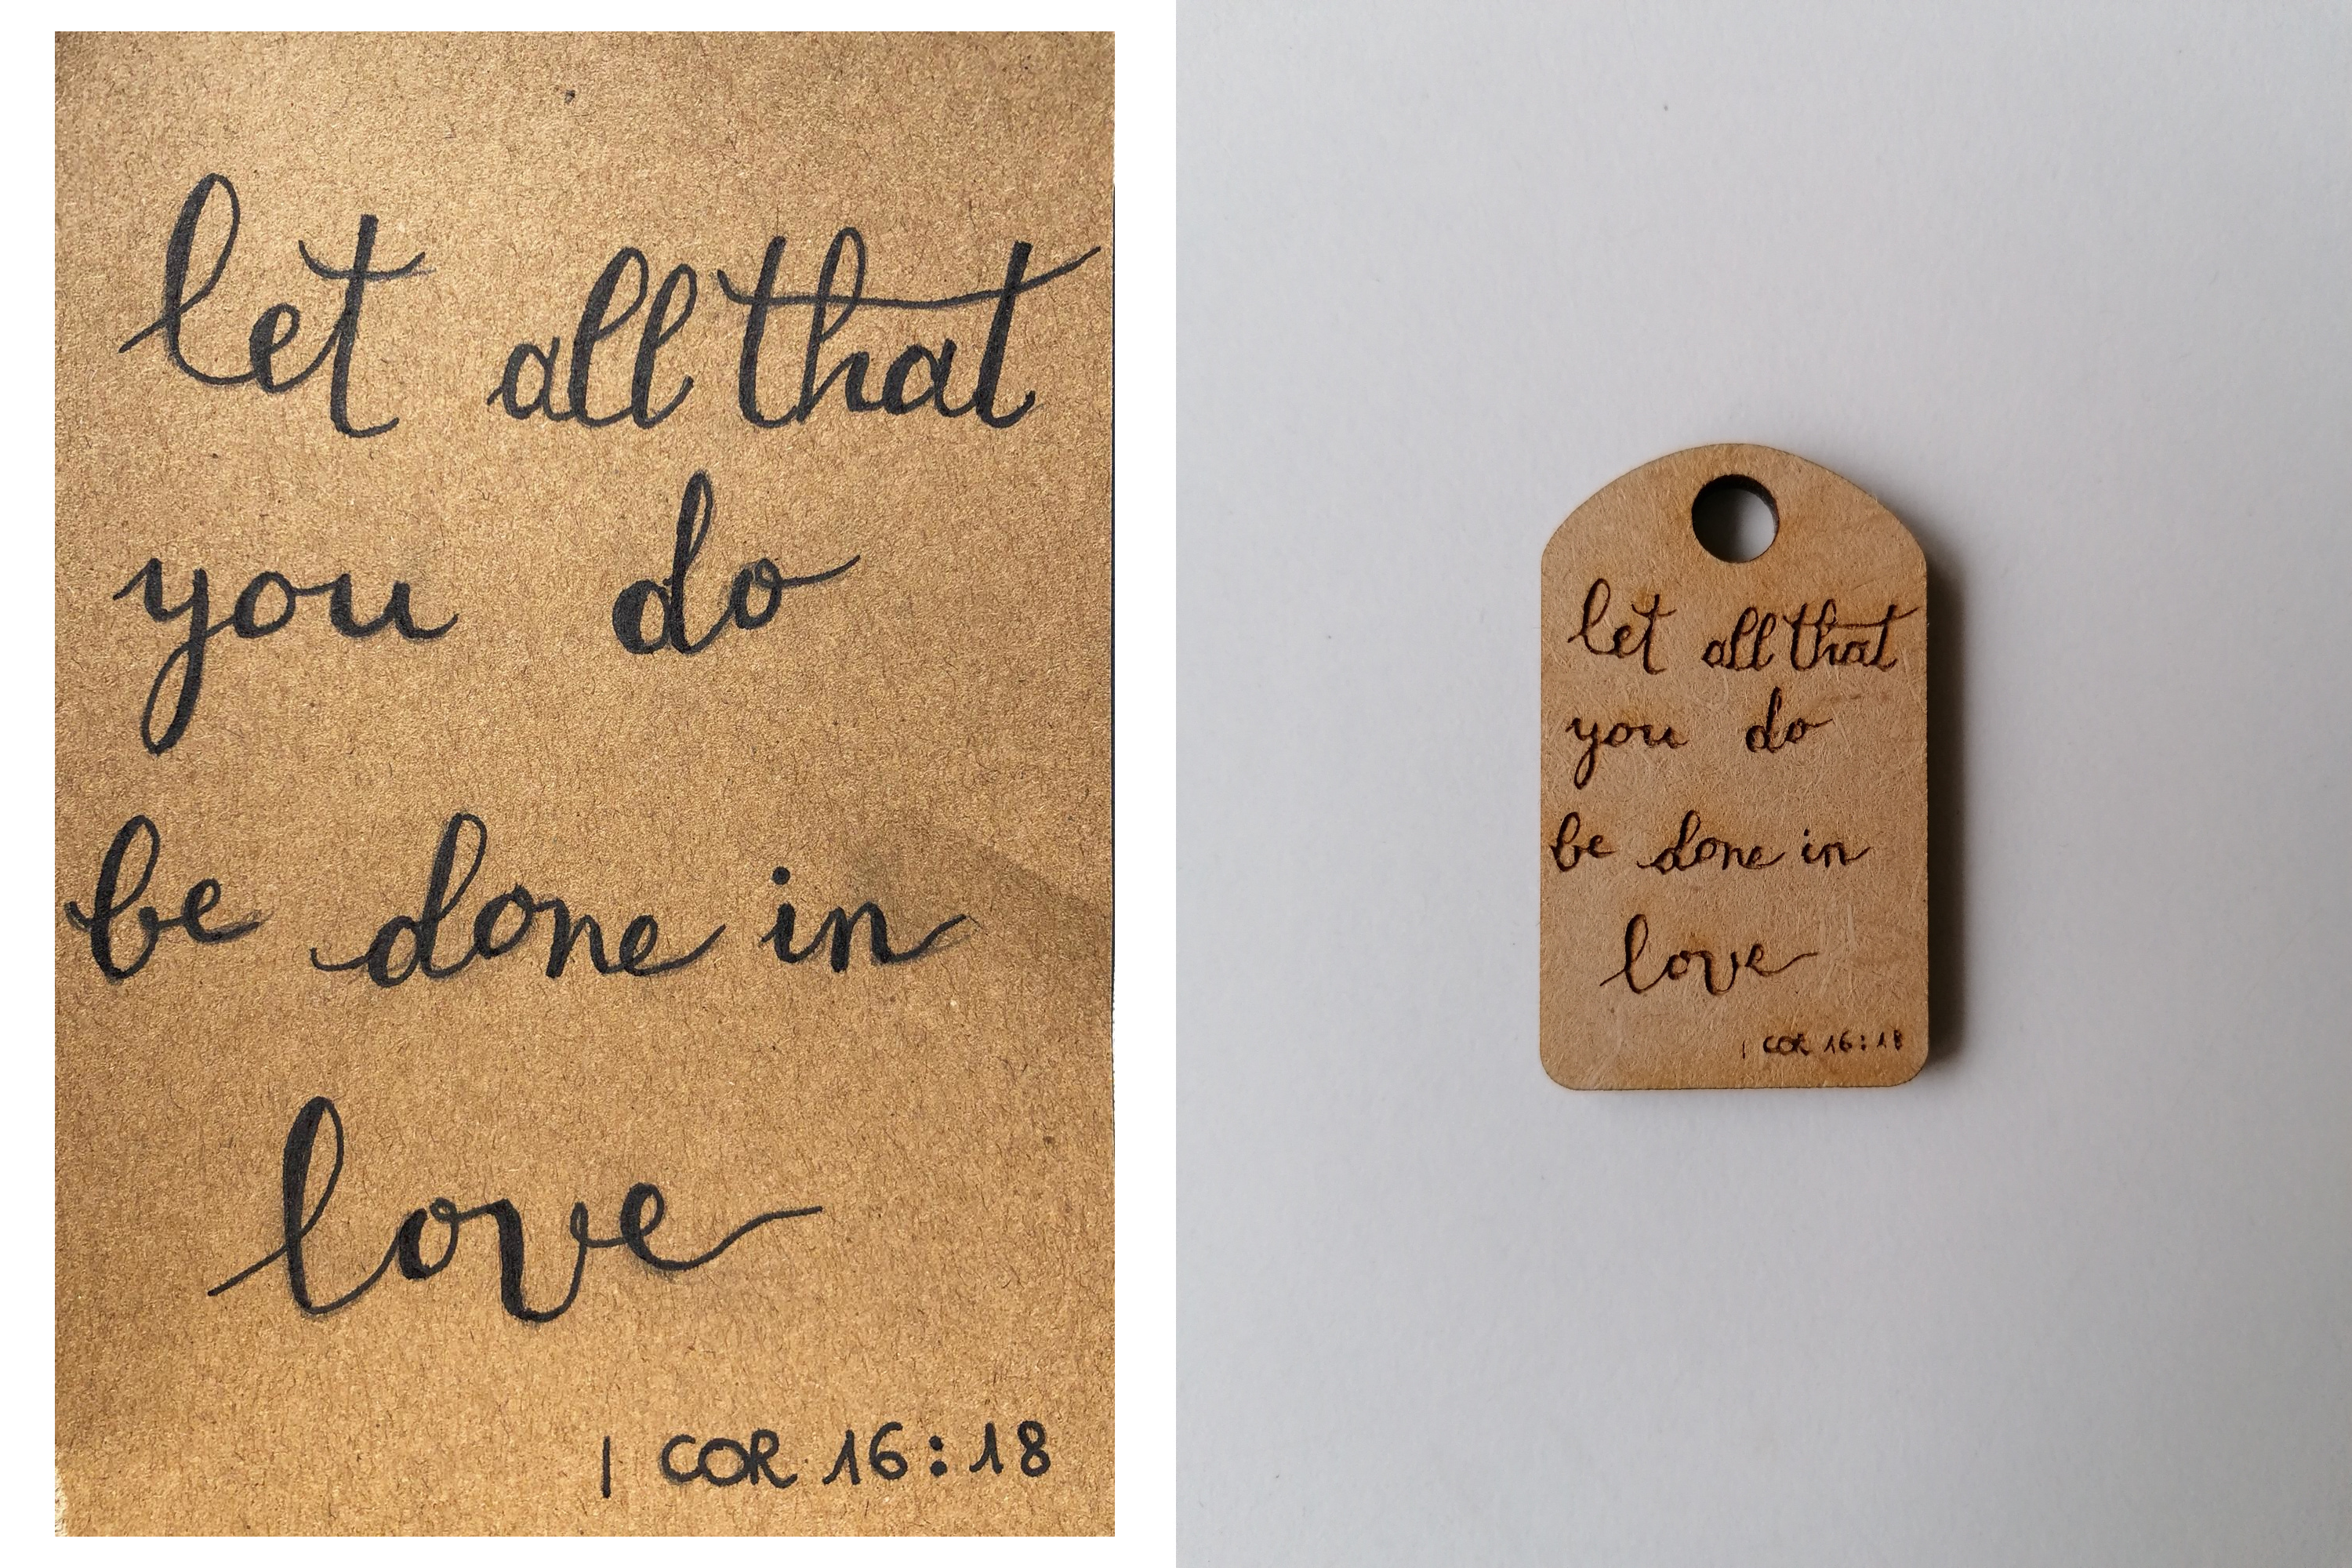 let all that
you do
be done in
love
1 COR 16:18
let all that
you do
be done in
love
1 COR 16:18